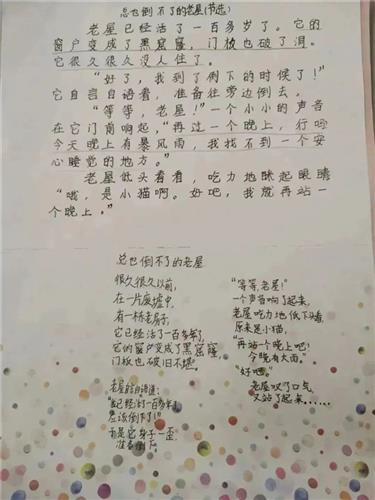 总也倒不了的老屋(节选)
老屋已经活了一百多岁了。它的
窗户变成了黑窟窿,门板也破了洞。
它很久很久没人住了。
“好了,我到了倒下的时候了!”
它自言自语着,准备往旁边倒去。
“等等,老屋!”一个小小的声音
在它门前响起,“再过一个晚上,行吗
今天晚上有暴风雨,我找不到一个安
心睡觉的地方。”
老屋低头看看,吃力地眯起眼睛
“哦,是小猫啊。好吧,我就再站一
个晚上。”
总也倒不了的老屋
很久很久以前,
在一片废墟中,
有一栋老房子,
它已经活了一百多年了,
它的窗户变成了黑窟窿,
门板也破旧不堪。
老屋自言自语道:
“我已经活了一百多年了
应该倒下了!”
于是它身子一歪
准备倒下。
“等等,老屋!”
一个声音响了起来,
老屋吃力地低下头看
原来是小猫,
“再站一个晚上吧!
今晚有大雨。”
“好吧。”
老屋叹了口气
又站了起来……